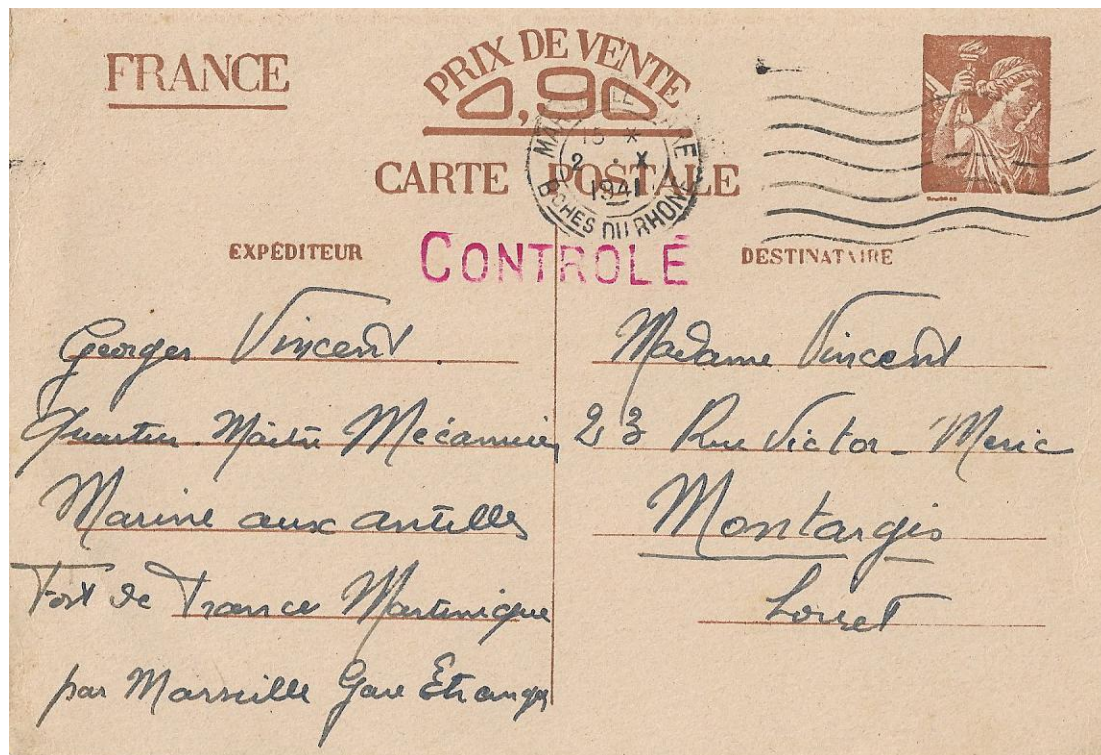 FRANCE
PRIX DE VENTE
0,90
CARTE POSTALE
15 *
2 · X
1941
BCHES DU RHONE
EXPÉDITEUR
CONTROLÉ
DESTINATAIRE
Georges Vincent
Quartier-Maître Mécanicien
Marine aux Antilles
Fort de France Martinique
par Marseille Gare Etranger
Madame Vincent
23 Rue Victor-Meric
Montargis
Loiret